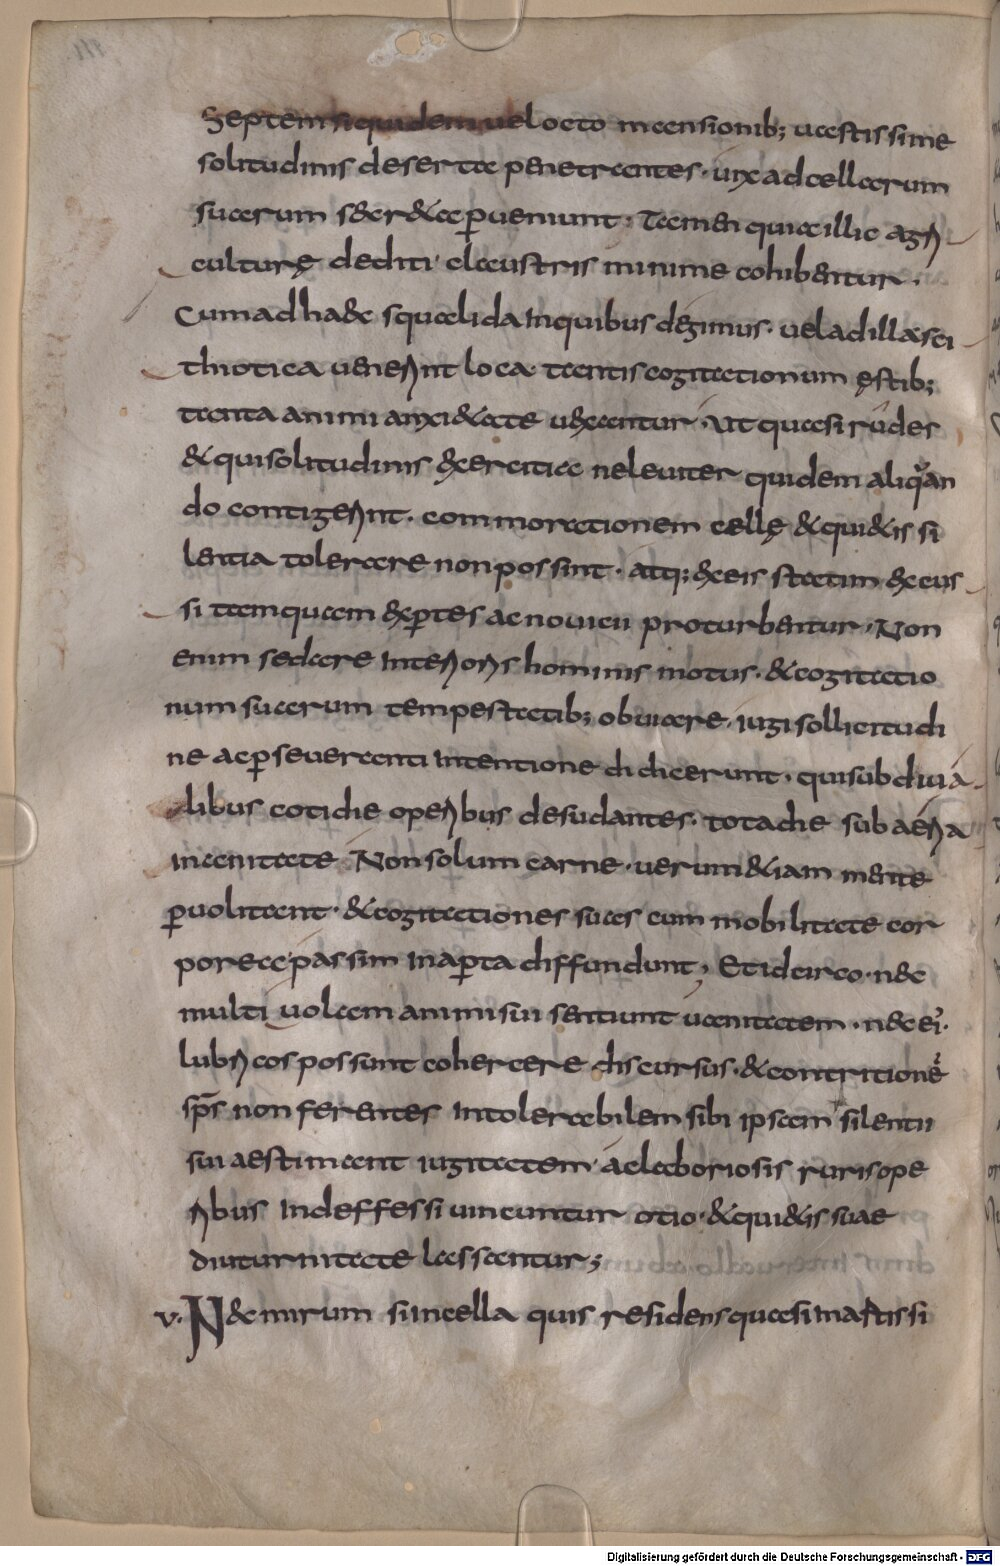 Septem siquidem vel octo mansionib; vastissime
solitudinis deserta penetrantes· vix ad cellarum
suarum s&er&a p̱veniunt· Tamen quia illic agri
culturę dediti claustris minime cohibentur·
Cum ad haec squalida in quibus degimus· vel ad illa sci
thiotica venerint loca tantis cogitationum ęstib;
tanta animi anxi&ate vexantur· ut quasi rudes
& qui solitudinis exercitia ne leviter quidem aliquan
do contigerint· commorationem cellę & qui&is si
lentia tolerare non possint· atq; ex eis statim excus
si tamquam exp̱tes ac novicii proturbentur· Non
enim sedare interioris hominis motus· & cogitatio
num suarum tempestatib; obviare· iugi sollicitudi
ne ac p̱severanti intentione didicerunt· qui subdivia
libus cotidie operibus desudantes· tota die sub aeria
inanitate Non solum carne· verum &iam mente
p̱volitant· & cogitationes suas cum mobilitate cor
porea passim in ap̱ta diffundunt· Et idcirco· nec
multivolam animi sui sentiunt vanitatem· nec ei·
lubricos possunt cohercere discursus· & contritionē
sp̄s non ferentes intolerabilem sibi ipsam silentii
sui aestimant iugitatem ac laboriosis ruris ope
ribus indeffessi vincuntur otio· & qui&is suae
diuturnitate lassantur;
v· Nec mirum si in cella quis residens quasi in artissi
Digitalisierung gefördert durch die Deutsche Forschungsgemeinschaft - DFG